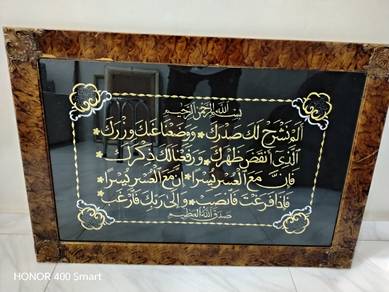 بسم الله الرحمن الرحيم
ألم نشرح لك صدرك * ووضعنا عنك وزرك *
الذي أنقض ظهرك * ورفعنا لك ذكرك *
فإن مع العسر يسرا * إن مع العسر يسرا *
فإذا فرغت فانصب * وإلى ربك فارغب *
صدق الله العظيم
HONOR 400 Smart